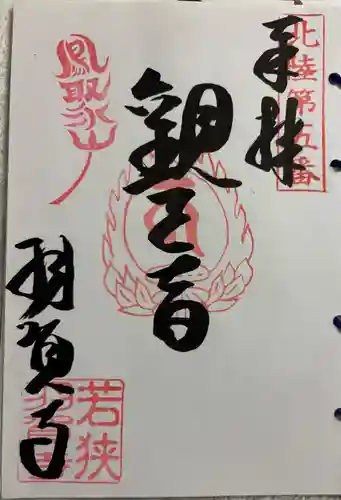 北陸第五番
奉拝
觀世音
鳳聚山
羽賀寺
若狭
羽賀寺